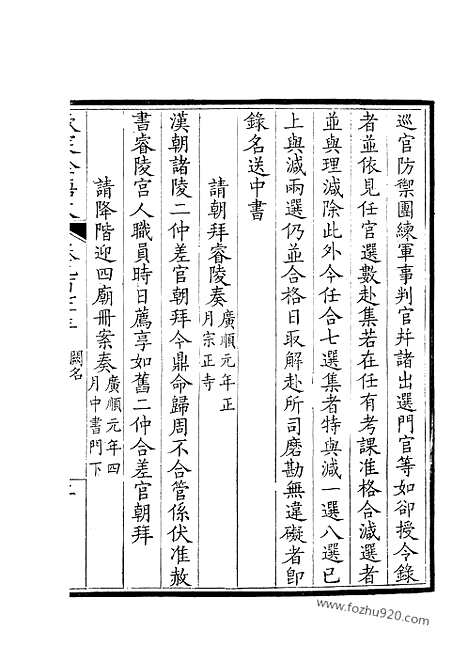 巡官防禦團練軍事判官并諸出選門官等如卻授令錄
者並依見任官選數赴集若在任有考課准格合減選者
並與理減除此外今任合七選集者特與減一選八選已
上與減兩選仍並合格日取解赴所司磨勘無違礙者即
錄名送中書
請朝拜睿陵奏廣順元年正月宗正寺
漢朝諸陵二仲差官朝拜今鼎命歸周不合管係伏准赦
書睿陵宮人職員時日薦享如舊二仲合差官朝拜
請降階迎四廟冊案奏廣順元年四月中書門下
闕名
www.fozhu920.com